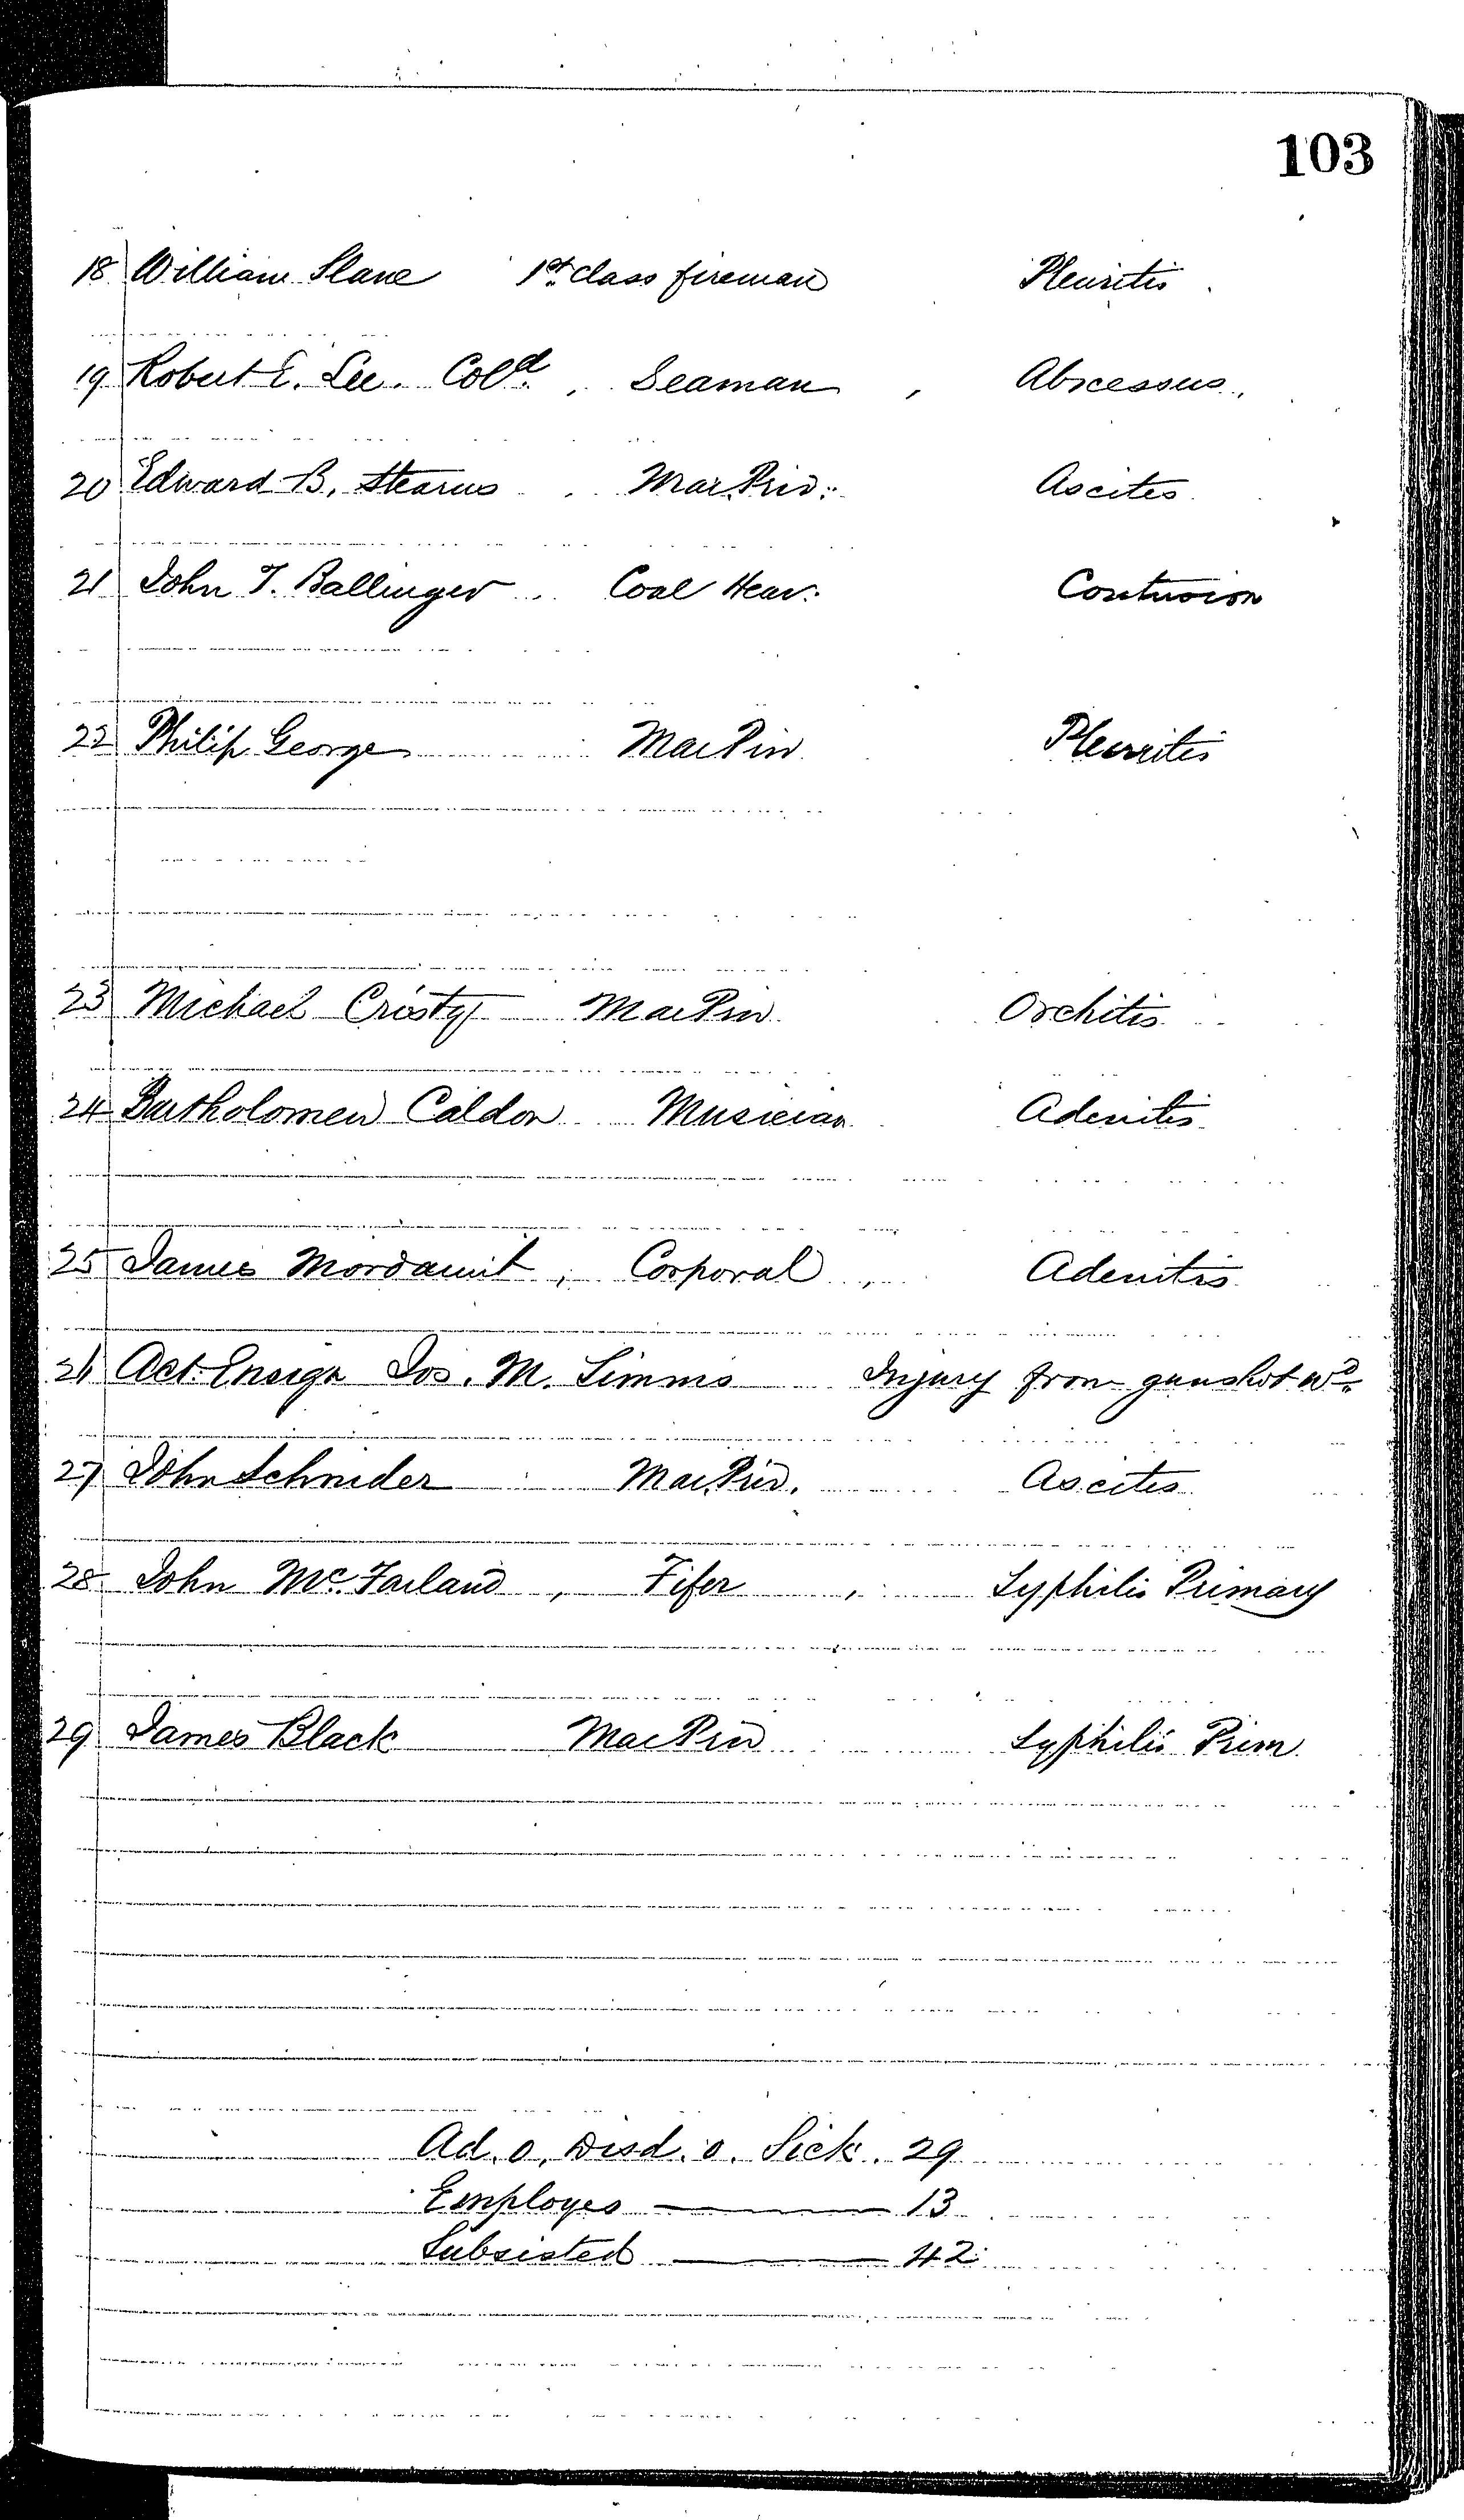 103
18 William Slane 1st class fireman Pleuritis
19 Robert E. Lee. Cold. , Seaman , Abscessus.
20 Edward B. Stearns . Mar. Priv: Ascites
21 John T. Ballinger .. Coal Heav: Contusion
22 Philip George Mar Priv Pleuritis
23 Michael Cristy Mar Priv Orchitis
24 Bartholomew Caldon Musician Adenitis
25 James Mordaunt , Corporal , Adenitis
26 Act. Ensign Jos. M. Simms Injury from gunshot wd.
27 John Schnider Mar. Priv. Ascites
28 John McFarland , Fifer , Syphilis Primary
29 James Black Mar Priv Syphilis Prim
Ad. 0. Disd. 0. Sick. 29
Employes — 13
Subsisted — 42